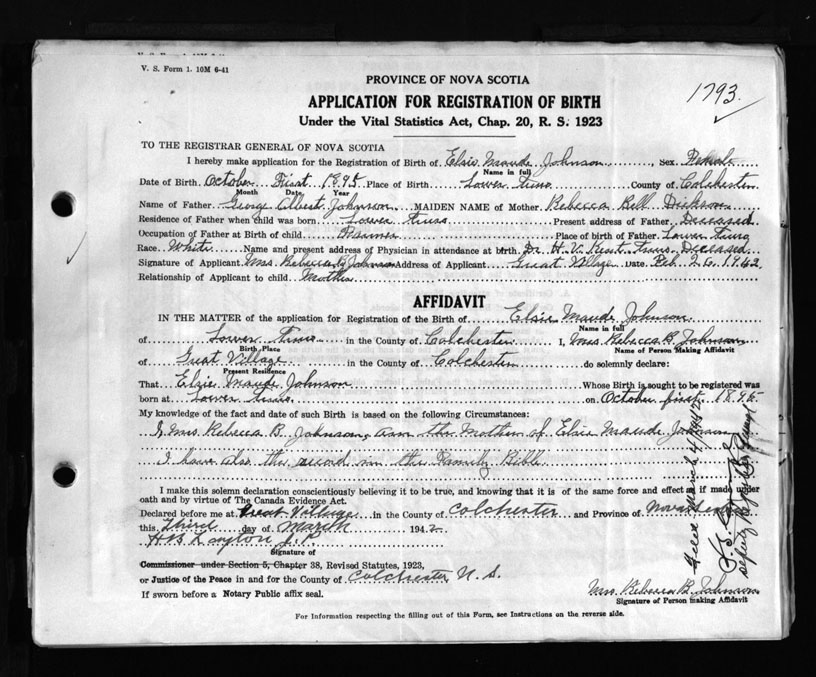 V. S. Form 1. 10M 6-41
1793.
PROVINCE OF NOVA SCOTIA
APPLICATION FOR REGISTRATION OF BIRTH
Under the Vital Statistics Act, Chap. 20, R. S. 1923
TO THE REGISTRAR GENERAL OF NOVA SCOTIA
I hereby make application for the Registration of Birth of Elsie Maude Johnson, Sex Female
Name in full
Date of Birth October First 1895 Place of Birth Lower Truro County of Colchester
Month Date Year
Name of Father George Albert Johnson MAIDEN NAME of Mother Rebecca Bell Dickson
Residence of Father when child was born Lower Truro Present address of Father Deceased
Occupation of Father at Birth of child Farmer Place of birth of Father Lower Truro
Race White Name and present address of Physician in attendance at birth Dr H. V. Truro, Deceased
Signature of Applicant Mrs Rebecca B Johnson Address of Applicant Great Village Date Feb. 26. 1942
Relationship of Applicant to child Mother
AFFIDAVIT
IN THE MATTER of the application for Registration of the Birth of Elsie Maude Johnson
Name in full
of Lower Truro in the County of Colchester I, Mrs Rebecca B. Johnson
Birth Place Name of Person Making Affidavit
of Great Village in the County of Colchester do solemnly declare:
Present Residence
That Elsie Maude Johnson Whose Birth is sought to be registered was
born at Lower Truro on October first 1895
My knowledge of the fact and date of such Birth is based on the following Circumstances:
I, Mrs Rebecca B. Johnson, am the Mother of Elsie Maude Johnson
I have also the record in the Family Bible
I make this solemn declaration conscientiously believing it to be true, and knowing that it is of the same force and effect as if made under
oath and by virtue of The Canada Evidence Act.
Declared before me at Great Village in the County of Colchester and Province of Nova Scotia
this Third day of March 1942
H B Layton J.P.
Signature of
Commissioner under Section 5, Chapter 38, Revised Statutes, 1923,
or Justice of the Peace in and for the County of Colchester N. S.
If sworn before a Notary Public affix seal.
Mrs. Rebecca B. Johnson
Signature of Person making Affidavit
For Information respecting the filling out of this Form, see Instructions on the reverse side.
March 4/1942
Deputy